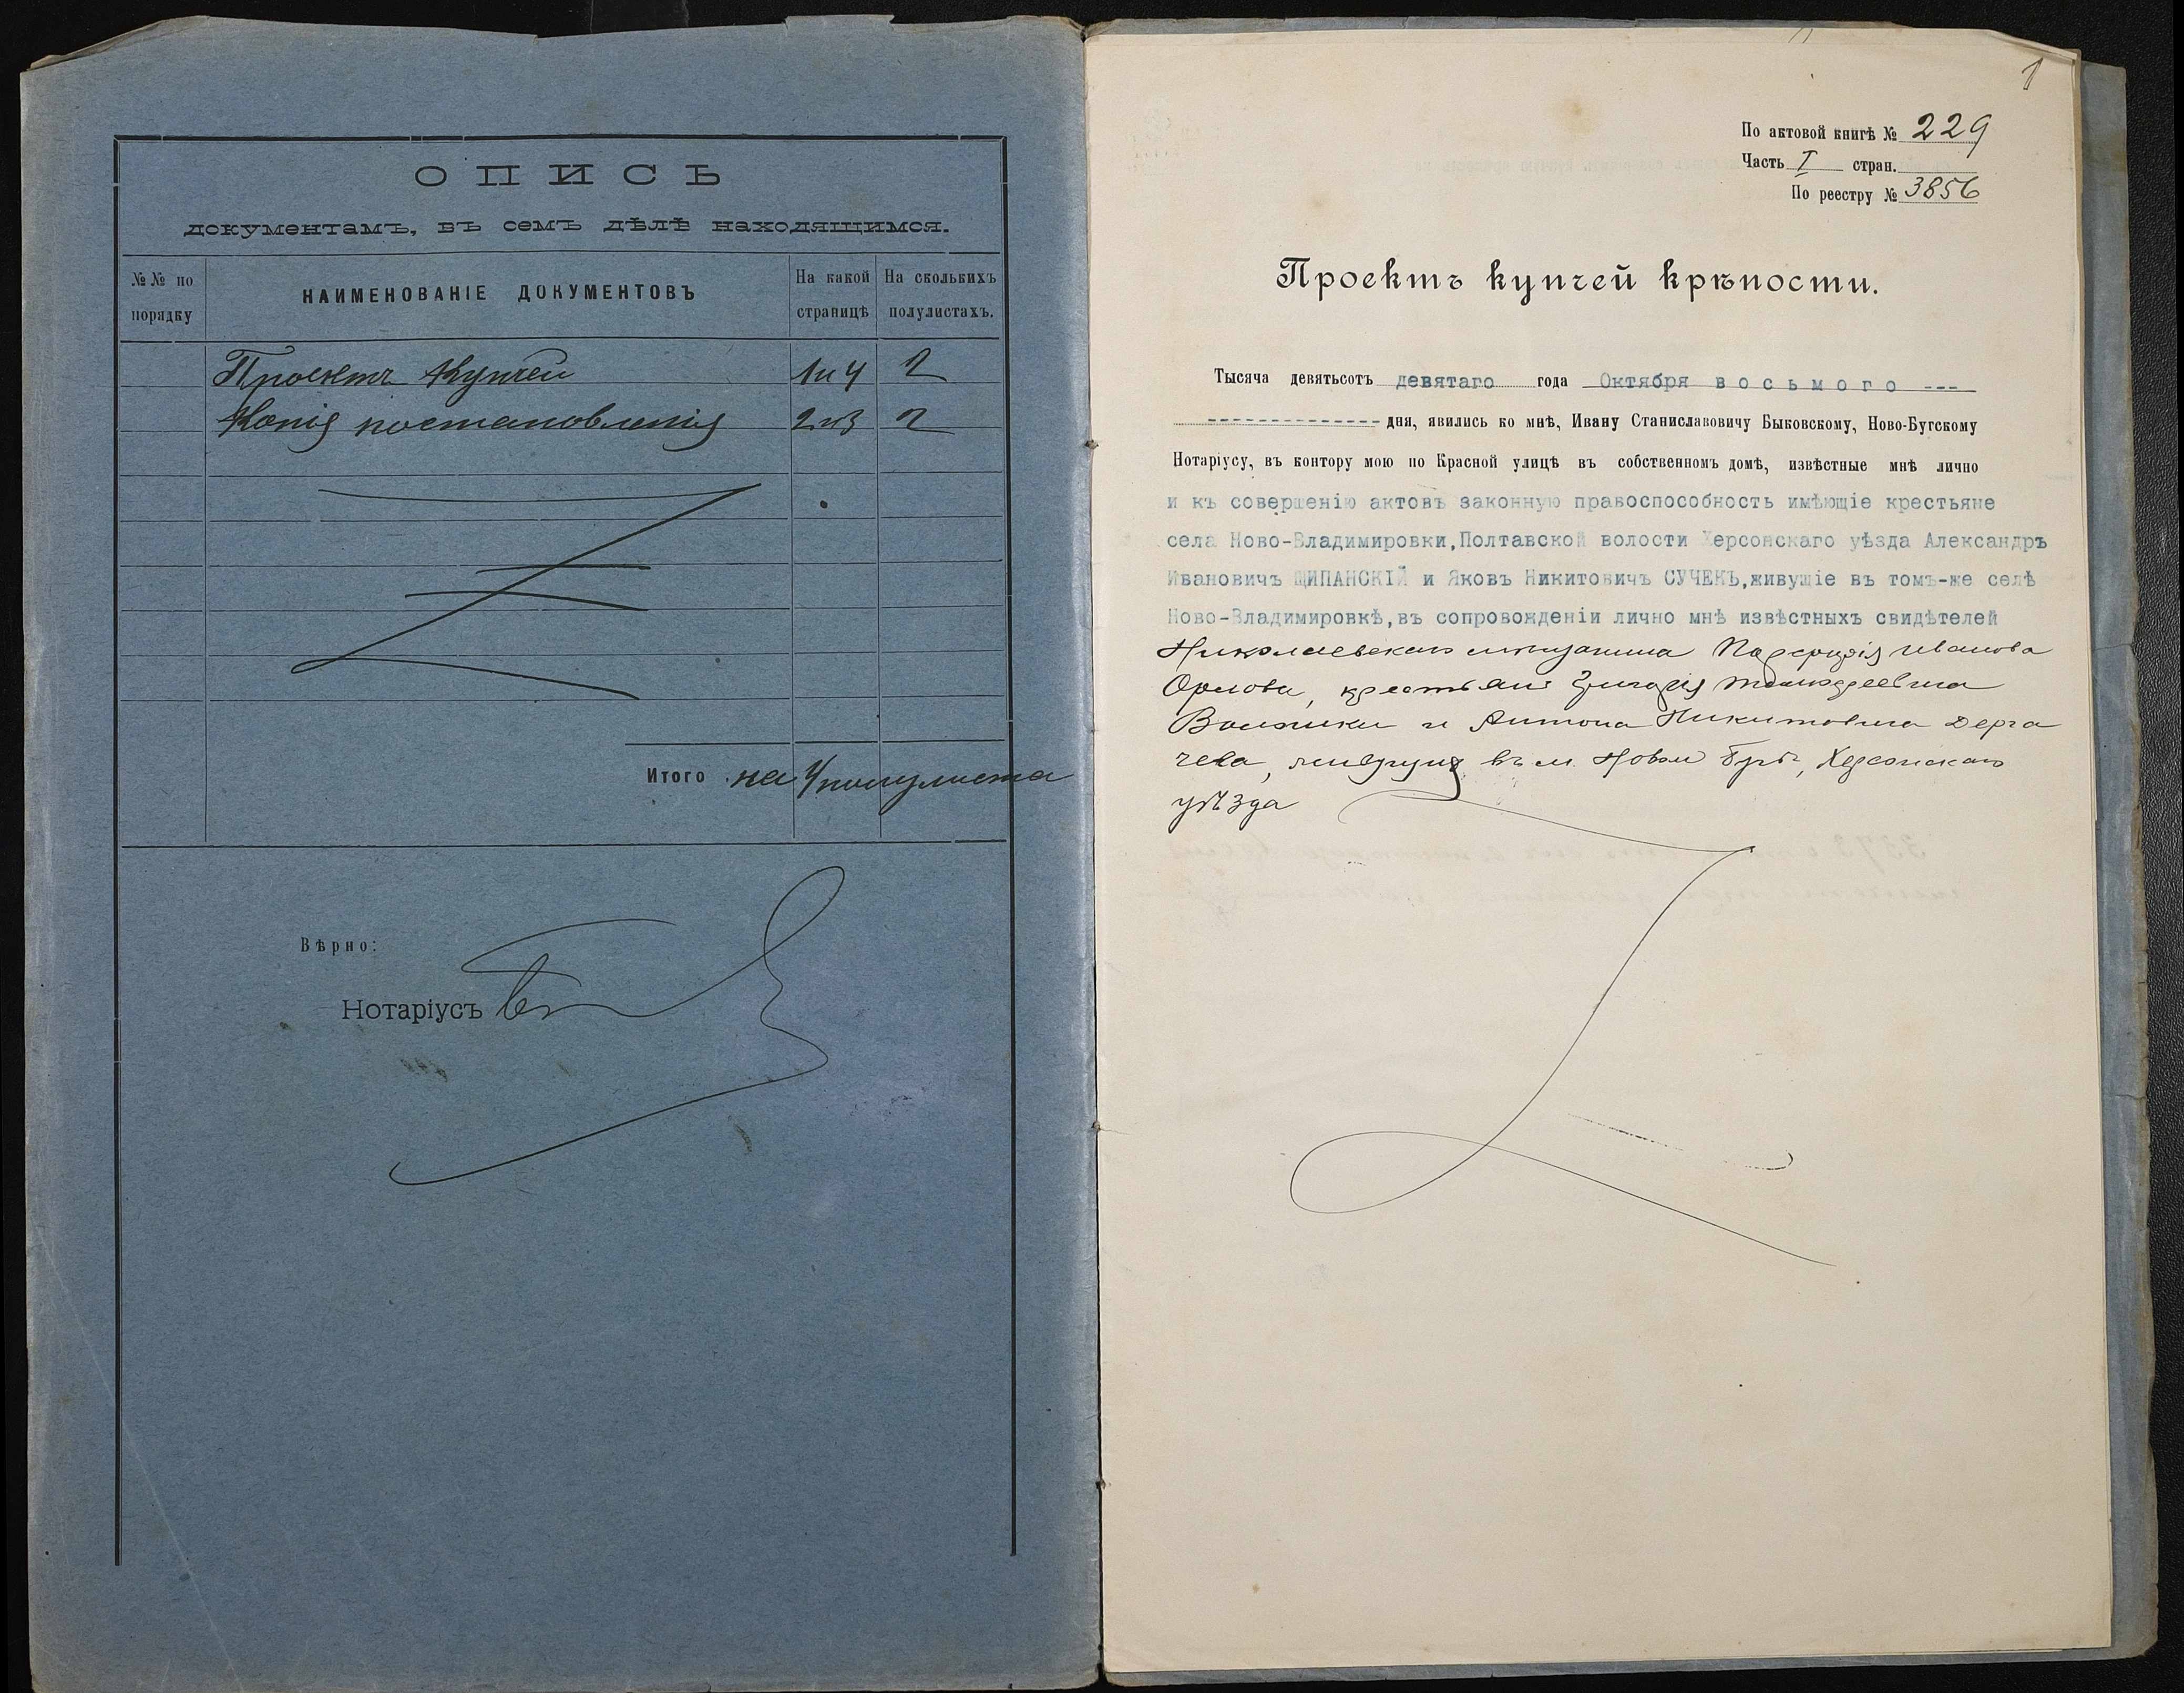 ОПИСЬ
документамъ, въ семъ дѣлѣ находящимся.
№№ по порядку
НАИМЕНОВАНІЕ ДОКУМЕНТОВЪ
На какой страницѣ
На сколькихъ полулистахъ.
Проектъ Купчей 1 и 4 2
Копія постановленія 2 и 3 2
Итого на 4 полулиста
Вѣрно:
Нотаріусъ
1
По актовой книгѣ № 229
Часть I стран.
По реестру № 3856
Проектъ купчей крѣпости.
Тысяча девятьсотъ девятаго года Октября восьмого ---
-------------- дня, явились ко мнѣ, Ивану Станиславовичу Быковскому, Ново-Бугскому
Нотаріусу, въ контору мою по Красной улицѣ въ собственномъ домѣ, извѣстные мнѣ лично
и къ совершенію актовъ законную правоспособность имѣющіе крестьяне
села Ново-Владимировки, Полтавской волости Херсонскаго уѣзда Александръ
Ивановичъ ЩИПАНСКІЙ и Яковъ Никитовичъ СУЧЕКЪ, живущіе въ томъ-же селѣ
Ново-Владимировкѣ, въ сопровожденіи лично мнѣ извѣстныхъ свидѣтелей
Николаевскаго мѣщанина Иванова
Орлова, крестьянъ
и Антона Никитовича Дерга
чева, живущихъ въ м. Новом Бугѣ, Херсонскаго
уѣзда